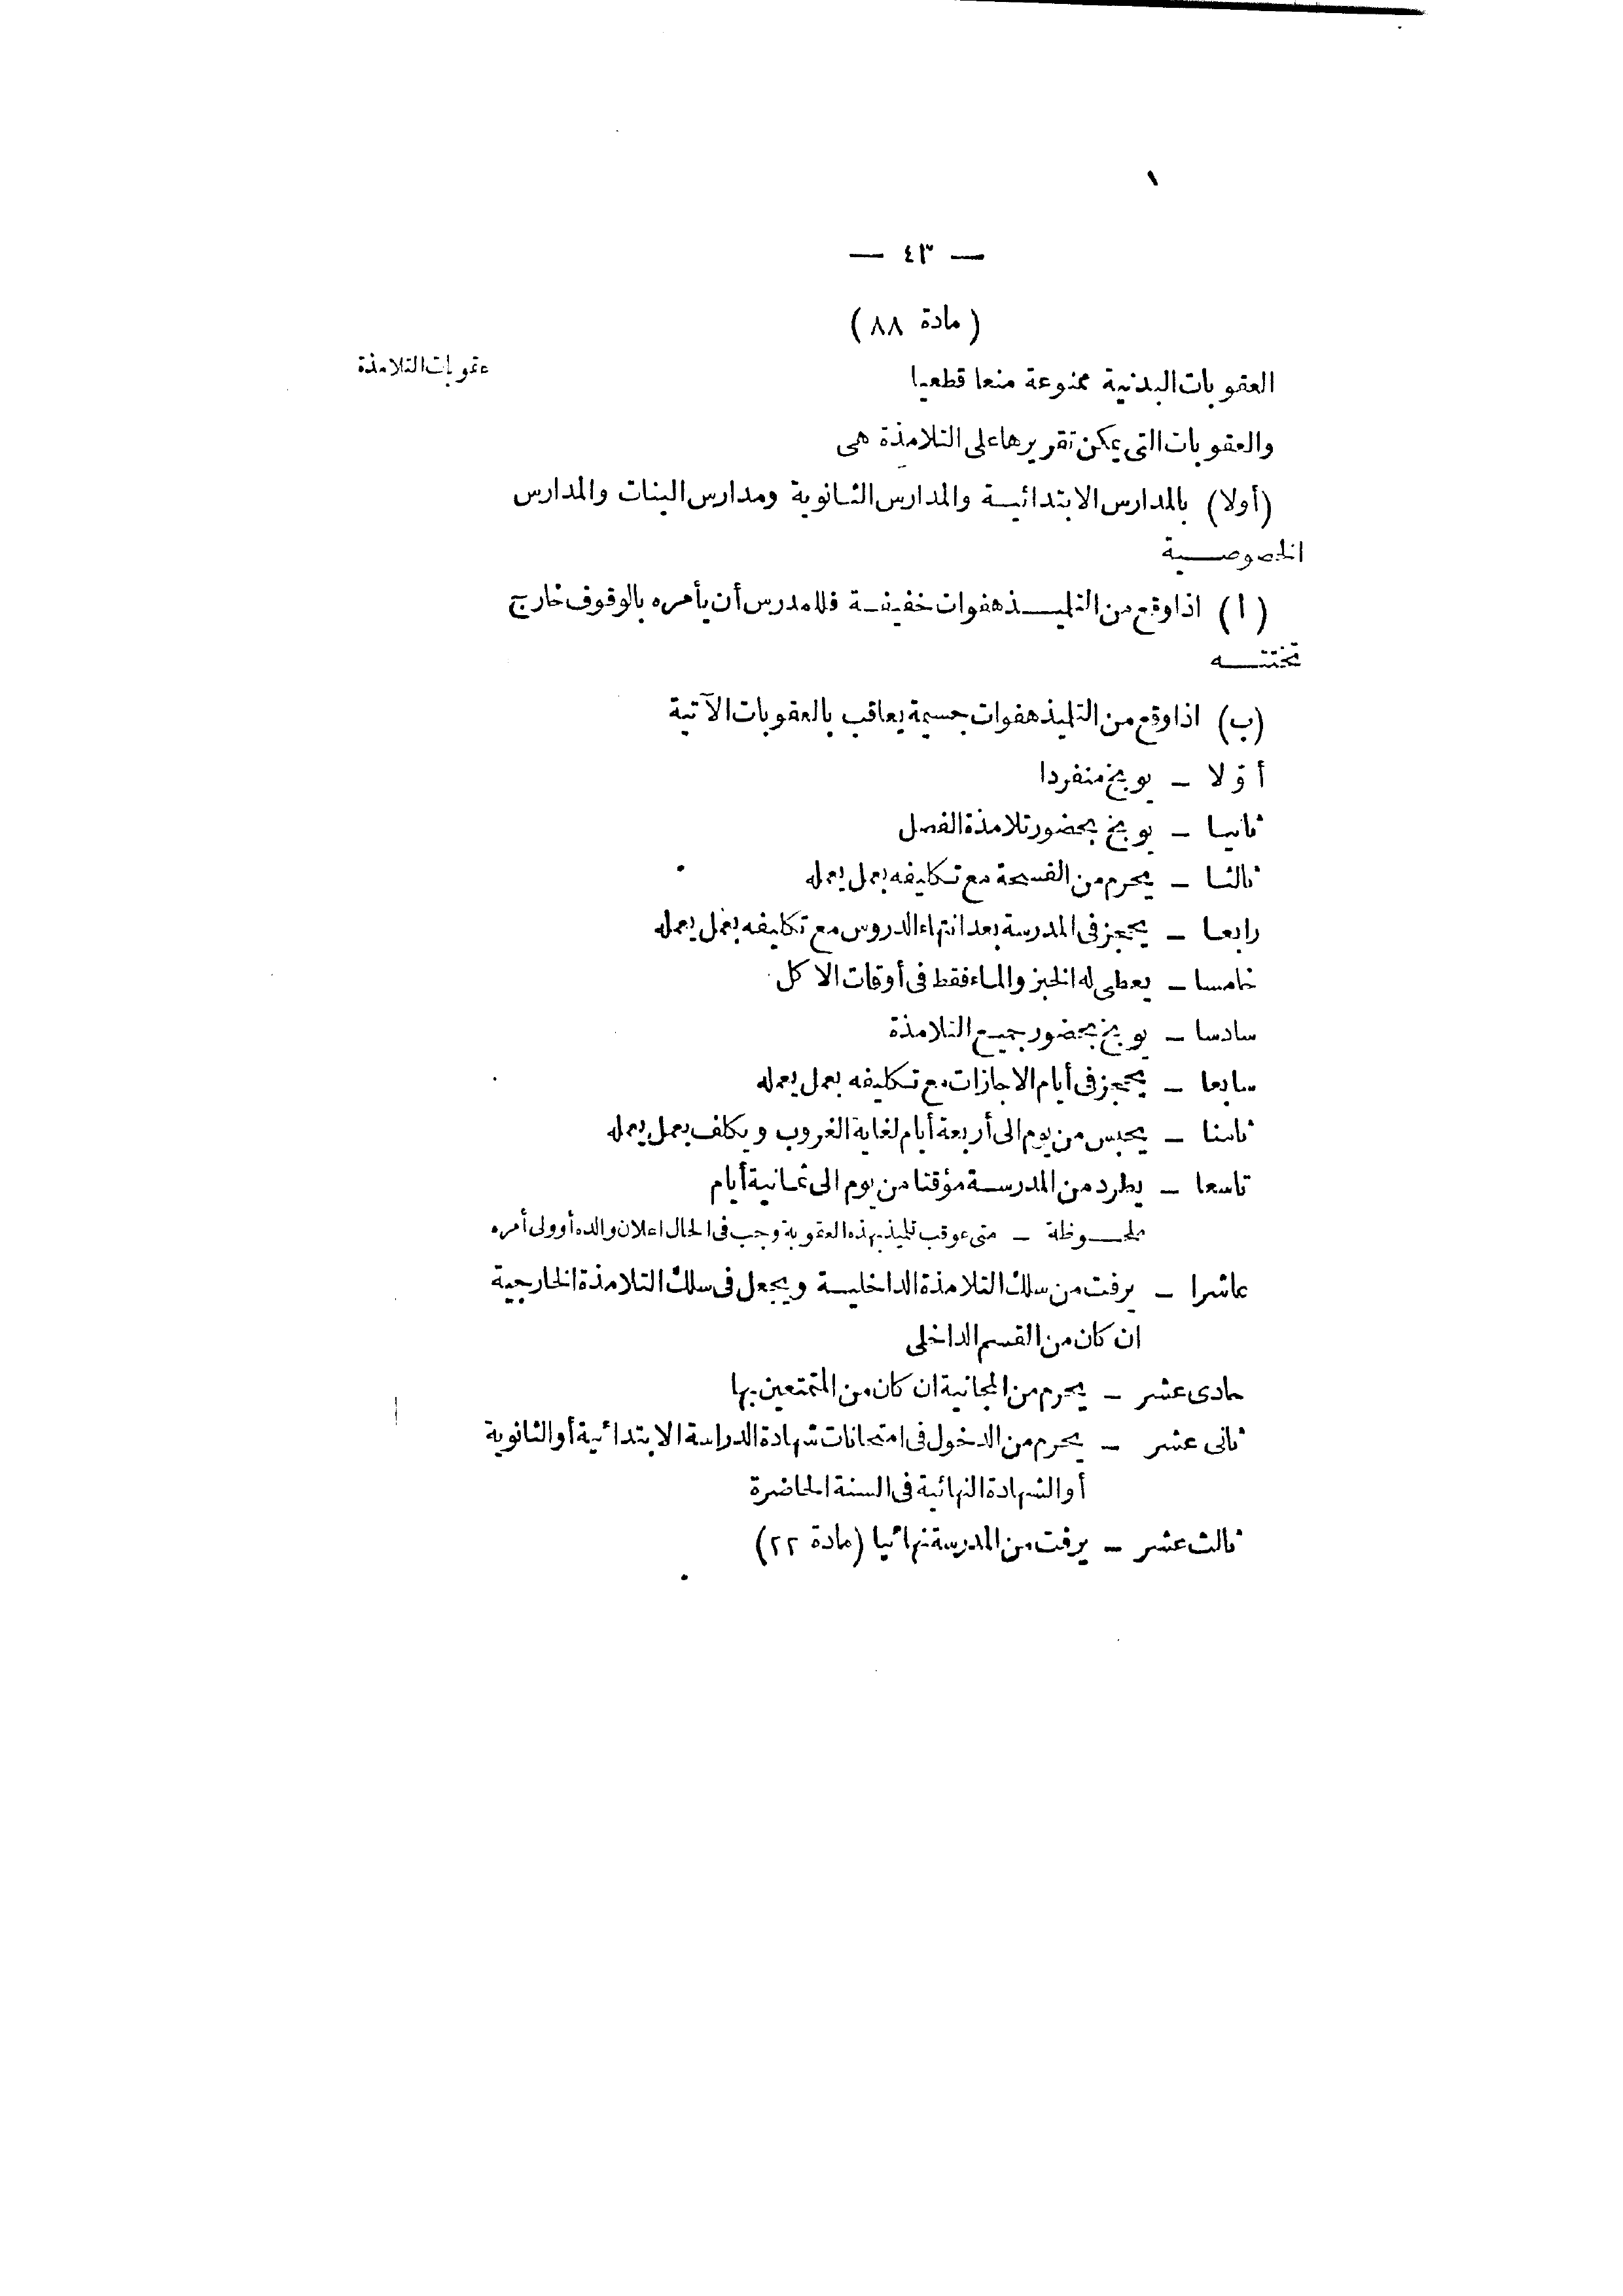 — ٤٣ —
(مادة ٨٨)
عقوبات التلامذة
العقوبات البدنية ممنوعة منعا قطعيا
والعقوبات التى يمكن تقريرها على التلامذة هى
(أولا) بالمدارس الابتدائية والمدارس الثانوية ومدارس البنات والمدارس
الخصوصية
(ا) اذا وقع من التلميذ هفوات خفيفة فللمدرس أن يأمره بالوقوف خارج
تختته
(ب) اذا وقع من التلميذ هفوات جسيمة يعاقب بالعقوبات الآتية
أوّلا — يوبخ منفردا
ثانيا — يوبخ بحضور تلامذة الفصل
ثالثا — يحرم من الفسحة مع تكليفه بعمل يعمله
رابعا — يحجز فى المدرسة بعد انتهاء الدروس مع تكليفه بعمل يعمله
خامسا — يعطى له الخبز والماء فقط فى أوقات الاكل
سادسا — يوبخ بحضور جميع التلامذة
سابعا — يحجز فى أيام الاجازات مع تكليفه بعمل يعمله
ثامنا — يحبس من يوم الى أربعة أيام لغاية الغروب ويكلف بعمل يعمله
تاسعا — يطرد من المدرسة مؤقتا من يوم الى ثمانية أيام
ملحوظة — متى عوقب تلميذ بهذه العقوبة وجب فى الحال اعلان والده أو ولى أمره
عاشرا — يرفت من سلك التلامذة الداخلية ويجعل فى سلك التلامذة الخارجية
ان كان من القسم الداخلى
حادى عشر — يحرم من المجانية ان كان من المتمتعين بها
ثانى عشر — يحرم من الدخول فى امتحانات شهادة الدراسة الابتدائية أو الثانوية
أو الشهادة النهائية فى السنة الحاضرة
ثالث عشر — يرفت من المدرسة نهائيا (مادة ٢٢)